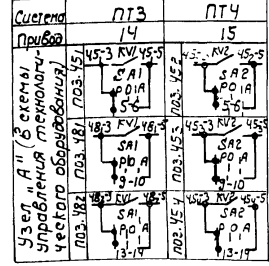 Система ПТ3 ПТ4
Привод 14 15
Узел "А" (В схемы
управления технологи-
ческого оборудования)
поз. 45.1
45-3 KV1 45-5
SA1
P O A
5-6
поз. 45.2
KV2
SA2
P O A
5-6
поз. 48.1
48-3 KV1 48-5
SA1
P O A
9-10
поз. 45.3
KV2
SA2
P O A
9-10
поз. 48.2
KV1
SA1
P O A
13-14
поз. 45.4
KV2
SA2
P O A
13-14